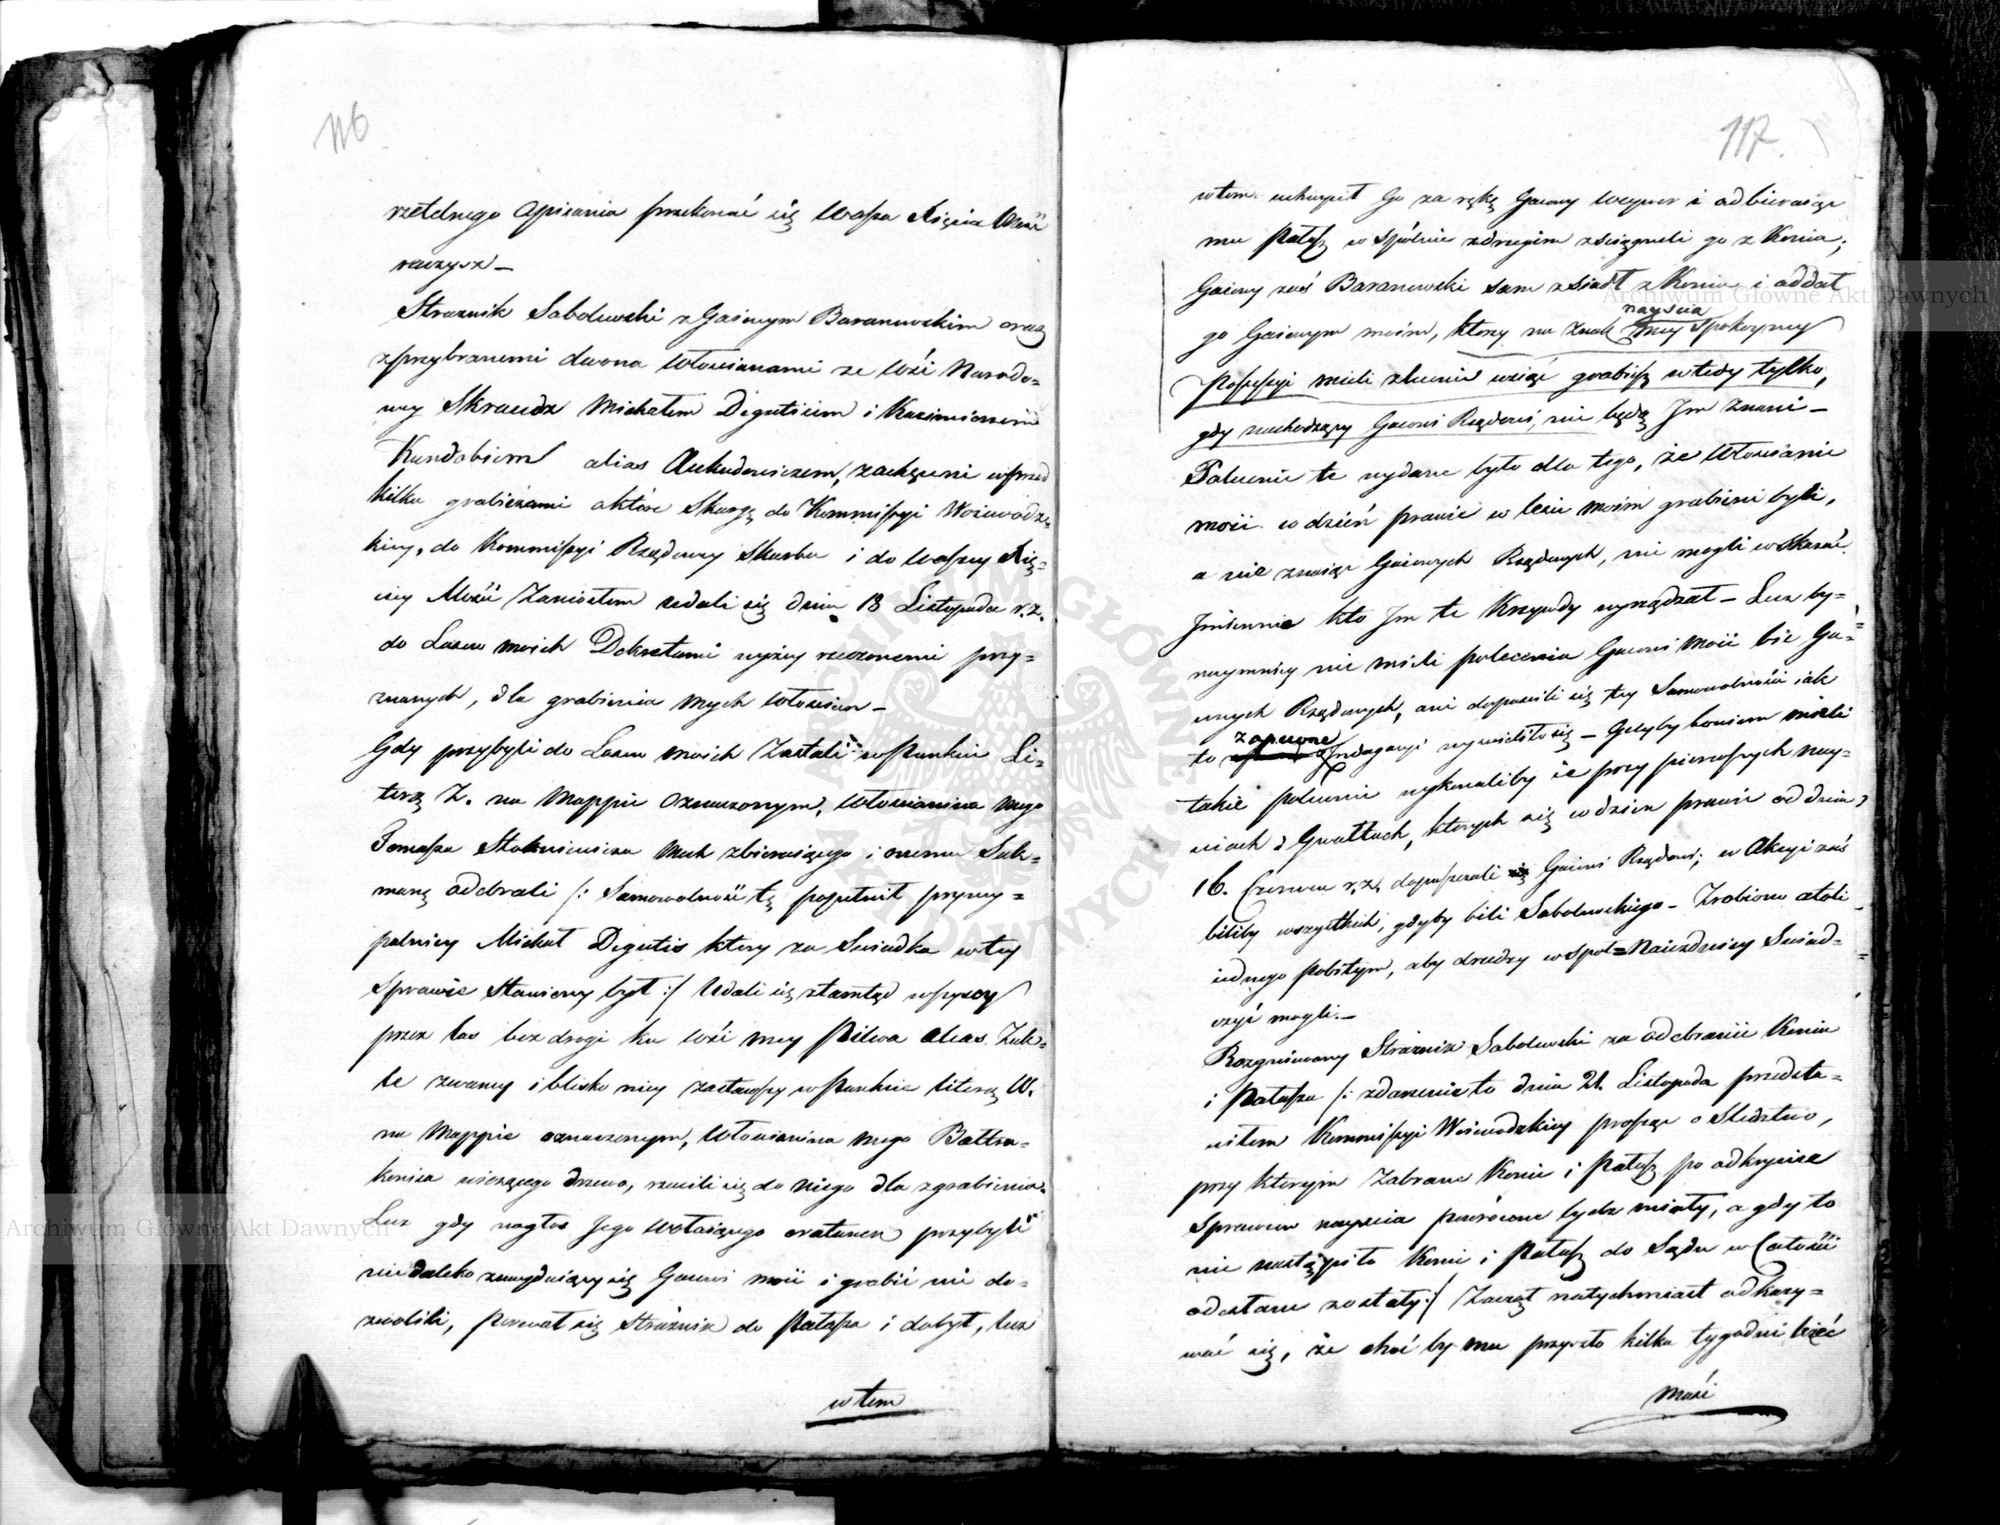 116
rzetelnego opisania przekonać się Wasza Xięcia Mość
raczysz –
Straznik Sobolewski z Gaiowym Baranowskim oraz
z przybranemi dwoma włościanami ze wśi Narodo=
wey Skraudz Michałem Degutisem i Kazimierzem
alias zachęceni wprzód
kilku grabieżami o które Skargę do Kommissyi Woiewódz=
kiey, do Kommissyi Rządowey Skarbu i do Waszey Xię=
cey Mości Zaniosłem udali się dnia 13 Listopada r. z.
do Lasow moich Dekretami wyżey rzeczonemi przy=
znanych, dla grabienia mych włościan –
Gdy przybyli do Lasow moich Zastali w punkcie Li=
terą Z. na Mappie oznaczonym, włościanina mego
Tomasza Mech zbieraiącego i onemu Suk=
manę odebrali /: Samowolność tę popełnił przyney=
palniey Michał Degutis ktory za Swiadka w tey
Sprawie Stawiony był :/ Udali się ztamtąd wszyscy
przez las bez drogi ku wśi mey Pilwa alias
le zwaney i blisko niey zastawszy w punkcie literą W.
na Mappie oznaczonym, włościanina mego Baltru=
konisa wiozącego drzewo, rzucili się do niego dla zgrabienia.
Lecz gdy na głos Jego wołaiącego o ratunek przybyli
niedaleko znayduiący się Gaiowi moii i grabić nie do=
zwolili, porwał się Strażnik do Pałasza i dobył, lecz
w tem
117.
w tem uchwycił Go za rękę Gaiowy Weywer i odbieraiąc
mu Pałasz w spólnie z drugim zsciągneli go z Konia;
Gaiowy zaś Baranowski sam zsiadł z Konia i oddał
go Gaiowym moim, ktorzy na znak
nayścia
mey Spokoyney
Possessyi mieli zlecenie wziąć grabież wtedy tylko,
gdy nachodzący Gaiowi Rządowi, nie będą Jm Znani –
Polecenie te wydane było dla tego, że Włościanie
moii co dzień prawie w lesie moim grabieni byli,
a nie znaiąc Gaiowych Rządowych, nie mogli wskazać
Jmiennie kto Jm te Krzywdy wyrządzał – Lecz by=
naymniey nie mieli polecenia Gaiowi moii bić Ga=
iowych Rządowych, ani dopuscili się tey Samowolności iak
to
zapewne
z Jndagacyi wyswieciło się – Gdyby bowiem mieli
takie polecenie wykonaliby ie przy pierwszych nay=
sciach i Gwałtach, ktorych się co dzien prawie od dnia
16. Czerwca r. z. dopuszczali Gaiowi Rządowi; w Akcyi zaś
biliby wszystkich, gdyby bili Sobolewskiego – Zrobiono atoli
iednego pobitym, aby drudzy wspol=Naiezdnicy Swiad=
czyć mogli. –
Rozgniewany Strażnik Sobolewski za odebranie Konia
i Pałasza /: zdarzenie to dnia 21. Listopada przedsta=
wiłem Kommissyi Woiewodzkiey prosząc o Sledztwo,
przy ktorym Zabrane Konie i Pałasz po odkryciu
Sprawcow nayscia powrócone bydz miały, a gdy to
nie nastąpiło Konie i Pałasz do Sądu w Całości
odesłane zostały :/ Zaczął natychmiast odkazy=
wać się, że choć by mu przyszło kilka tygodni leżeć
musi
Archiwum Główne Akt Dawnych
Archiwum Główne Akt Dawnych
ARCHIWUM GŁÓWNE AKT DAWNYCH